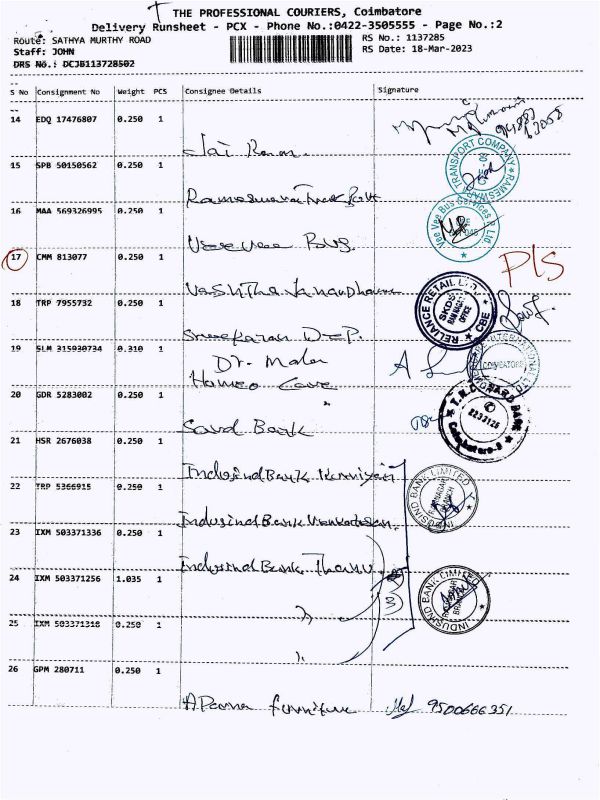 THE PROFESSIONAL COURIERS, Coimbatore
Delivery Runsheet - PCX - Phone No.:0422-3505555 - Page No.:2
Route: SATHYA MURTHY ROAD
RS No.: 1137285
Staff: JOHN
RS Date: 18-Mar-2023
DRS No.: DCJB113728502
S No Consignment No Weight PCS Consignee Details Signature
14 EDQ 17476807 0.250 1
Jai Ram
15 SPB 50150562 0.250 1
TRANSPORT COMPANY RAMESWARA
16 MAA 569326995 0.250 1
Veevee Bus
Vee Vee Bus Services P Ltd
17 CMM 813077 0.250 1
P/S
18 TRP 7955732 0.250 1
RELIANCE RETAIL LTD CBE
19 SLM 315930734 0.310 1
Dr. Mala
Homeo Care
COIMBATORE
20 GDR 5283002 0.250 1
Sarad Bank
21 HSR 2676038 0.250 1
IndusindBank
INDUSIND BANK LIMITED
22 TRP 5366915 0.250 1
IndusindBank Venkadesan
23 IXM 503371336 0.250 1
IndusindBank
24 IXM 503371256 1.035 1
INDUSIND BANK LIMITED
25 IXM 503371318 0.250 1
26 GPM 280711 0.250 1
APerna furniture 9500666351